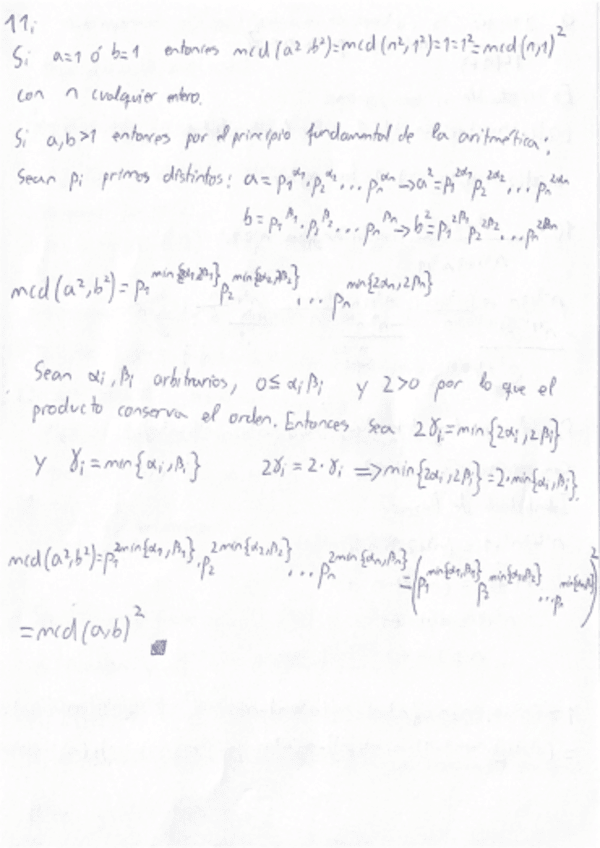 11.
Si a=1 ó b=1 entonces mcd(a²,b²)=mcd(n²,1²)=1=1²=mcd(n,1)²
con n cualquier entero.
Si a,b>1 entonces por el principio fundamental de la aritmética:
Sean pi primos distintos: a=p₁^α₁·p₂^α₂...pₙ^αₙ→a²=p₁^2α₁ p₂^2α₂...pₙ^2αₙ
b=p₁^β₁·p₂^β₂...pₙ^βₙ→b²=p₁^2β₁ p₂^2β₂...pₙ^2βₙ
mcd(a²,b²)=p₁^min{2α₁,2β₁} p₂^min{2α₂,2β₂} ... pₙ^min{2αₙ,2βₙ}
Sean αi,βi arbitrarios, 0≤αi,βi y 2>0 por lo que el
producto conserva el orden. Entonces sea 2γi=min{2αi,2βi}
y γi=min{αi,βi} 2γi=2·γi ⟹min{2αi,2βi}=2·min{αi,βi}
mcd(a²,b²)=p₁^2min{α₁,β₁}·p₂^2min{α₂,β₂}...pₙ^2min{αₙ,βₙ}=(p₁^min{α₁,β₁} p₂^min{α₂,β₂}...pₙ^min{αₙ,βₙ})²
=mcd(a,b)²